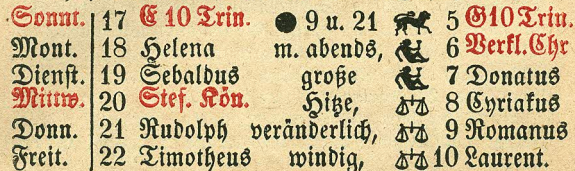 Sonnt. 17 E 10 Trin. ● 9 u. 21 5 G10 Trin.
Mont. 18 Helena m. abends, 6 Verkl. Chr
Dienst. 19 Sebaldus große 7 Donatus
Mittw. 20 Stef. Kön. Hitze, 8 Cyriakus
Donn. 21 Rudolph veränderlich, 9 Romanus
Freit. 22 Timotheus windig, 10 Laurent.